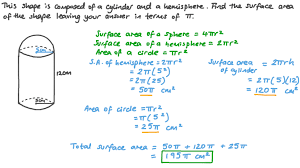 This shape is composed of a cylinder and a hemisphere. Find the surface area
of the shape leaving your answer in terms of π.
Surface area of a sphere = 4πr²
Surface area of a hemisphere = 2πr²
Area of a circle = πr²
S.A. of hemisphere = 2πr²
= 2π(5²)
= 2π(25)
= 50π cm²
Surface area of cylinder = 2πrh
= 2π(5)(12)
= 120π cm²
12cm
Area of circle = πr²
= π(5²)
= 25π cm²
Total surface area = 50π + 120π + 25π
= 195π cm²